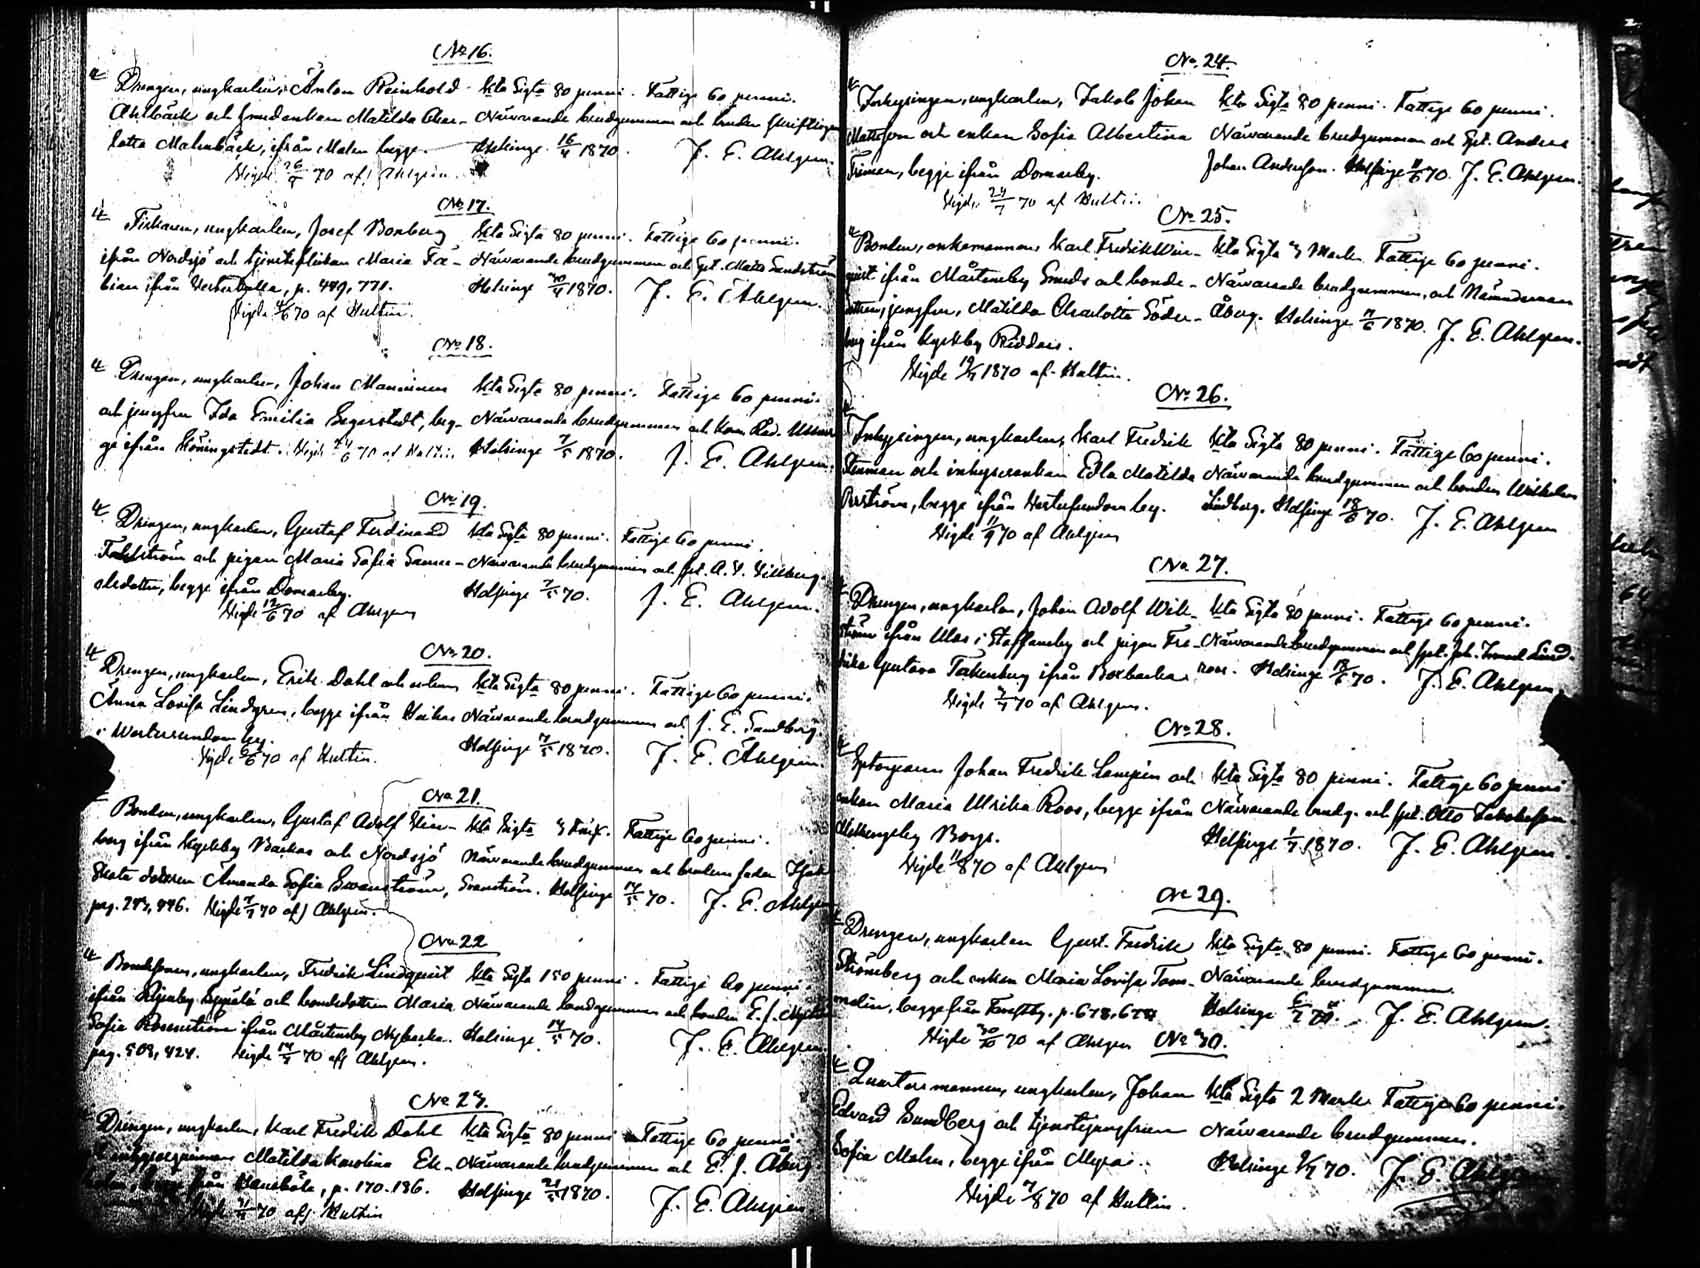 No 16.
Drengen, ungkarlen, Anton Reinhold
Ahlbäck och Smedenkan Matilda Char-
lotta Malmbäck, ifrån Malm begge.
Vigde 26/5 70 af Ahlgren.
Kta Sigta 80 penni. Fattige 60 penni.
Närvarande brudgummen och
Helsinge 16/4 1870. J. E. Ahlgren.
No 17.
Fiskaren, ungkarlen, Josef Bonberg
ifrån Nordsjö och tjensteflickan Maria Fa-
bian ifrån Vesterkulla, p. 449, 771.
Vigde 6/6 70 af Hultin.
Kta Sigta 80 penni. Fattige 60 penni.
Närvarande brudgummen och Spt. Matts Sandström
Helsinge 30/4 1870. J. E. Ahlgren.
No 18.
Drengen, ungkarlen, Johan Manninen
och jungfrun Ida Emilia Segerstedt, beg-
ge ifrån Köningstedt. Vigde 24/6 70 af Hultin.
Kta Sigta 80 penni. Fattige 60 penni.
Närvarande brudgummen och
Helsinge 7/5 1870. J. E. Ahlgren.
No 19.
Drengen, ungkarlen, Gustaf Ferdinand
Fahlström och pigan Maria Sofia Samu-
elsdotter, begge ifrån Domarby.
Vigde 12/6 70 af Ahlgren
Kta Sigta 80 penni. Fattige 60 penni.
Närvarande brudgummen och spt. A. V. Lillberg.
Helsinge 7/5 70. J. E. Ahlgren.
No 20.
Drengen, ungkarlen, Erik Dahl och enkan
Anna Lovisa Lindgren, begge ifrån Heikas
i Westersundom by.
Vigde 6/6 70 af Hultin.
Kta Sigta 80 penni. Fattige 60 penni.
Närvarande brudgummen och J. E. Sundberg
Helsinge 7/5 1870. J. E. Ahlgren
No 21.
Bonden, ungkarlen, Gustaf Adolf
berg ifrån Kyrkby Backas och Nordsjö
Skata dottren Amanda Sofia Svanström,
pag. 273, 446. Vigde 7/7 70 af Ahlgren.
Kta Sigta 3 Fattige 60 penni.
Närvarande brudgummen och brudens fader
Svanström. Helsinge 14/5 70. J. E. Ahlgren
No 22
Bondesonen, ungkarlen, Fredrik Lindqvist
ifrån Seppälä och bondedottren Maria
Sofia Rosenström ifrån Mårtensby Nybacka.
pag. 508, 424. Vigde 14/7 70 af Ahlgren.
Kta Sigta 150 penni. Fattige 60 penni
Närvarande brudgummen och bonden E. J.
Helsinge 14/5 70. J. E. Ahlgren
No 23.
Drengen, ungkarlen, Karl Fredrik Dahl
Matilda Karolina Ek-
ifrån Hanaböle, p. 170. 186.
70 af Hultin
Kta Sigta 80 penni Fattige 60 penni.
Närvarande brudgummen och E. J. Åberg
Helsinge 21/5 1870. J. E. Ahlgren
No 24.
Inhysingen, ungkarlen, Jakob Johan
Mattsson och enkan Sofia Albertina
Friman, begge ifrån Domarby.
Vigde 24/7 70 af Hultin.
Kta Sigta 80 penni. Fattige 60 penni.
Närvarande brudgummen och Spt. Anders
Johan Andersson. Helsinge 11/6 70. J. E. Ahlgren.
No 25.
Bonden, enkemannen, Karl Fredrik Win-
qvist ifrån Mårtensby Smeds och bonde-
dottren, jungfrun, Matilda Charlotta Söder-
berg ifrån Kyrkby Riddars.
Vigde 1870 af Hultin.
Kta Sigta 3 Mark Fattige 60 penni.
Närvarande brudgummen, och Nämndeman
Åberg. Helsinge 11/6 1870. J. E. Ahlgren.
No 26.
Inhysingen, ungkarlen, Karl Fredrik
Stenman och inhysesenkan Edla Matilda
begge ifrån Westersundom by.
Vigde 11/9 70 af Ahlgren
Kta Sigta 80 penni. Fattige 60 penni.
Närvarande brudgummen och bonden Wilhelm
Lindberg. Helsinge 18/6 70. J. E. Ahlgren
No 27.
Drengen, ungkarlen, Johan Adolf Wik-
ström ifrån Ulas i Staffansby och pigan Fre-
drika Gustava Tackenberg ifrån Boxbacka
Vigde 70 af Ahlgren.
Kta Sigta 80 penni. Fattige 60 penni.
Närvarande brudgummen och spt. Joh. Lind-
roos. Helsinge 18/6 70. J. E. Ahlgren.
No 28.
Johan Fredrik Lampén och
enkan Maria Ulrika Roos, begge ifrån
Borgs.
Vigde 11/8 70 af Ahlgren
Kta Sigta 80 penni. Fattige 60 penni
Närvarande brudg. och spt. Otto Jakobsson.
Helsinge 1/7 1870. J. E. Ahlgren.
No 29.
Drengen, ungkarlen Gust. Fredrik
Strömberg och enkan Maria Lovisa Tam-
melin, begge från Forsby. p. 678, 678
Vigde 30/10 70 af Ahlgren
Kta Sigta 80 penni. Fattige 60 penni.
Närvarande brudgummen.
Helsinge 6/7 70. J. E. Ahlgren.
No 30.
Qvartersmannen, ungkarlen, Johan
Edvard Sundberg och tjenstejungfrun
Sofia Malm, begge ifrån Myras.
Vigde 7/8 70 af Hultin.
Kta Sigta 2 Mark Fattige 60 penni.
Närvarande brudgummen.
Helsinge 9/7 70. J. E. Ahlgren